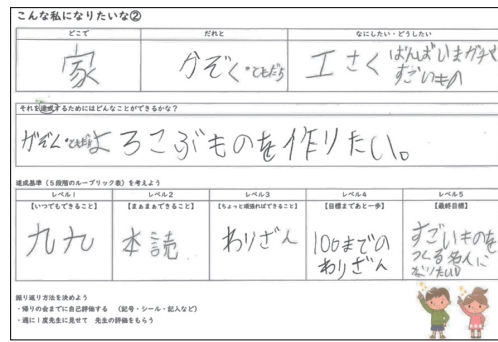 こんな私になりたいな②
どこで だれと なにしたい・どうしたい
家 かぞく・ともだち 工さく ばんばいまガチャ
すごいもの
それを達成するためにはどんなことができるかな?
かぞく・ともだちよろこぶものを作りたい。
達成基準(5段階のルーブリック表)を考えよう
レベル1 レベル2 レベル3 レベル4 レベル5
【いつでもできること】 【まぁまぁできること】 【ちょっと頑張ればできること】 【目標まであと一歩】 【最終目標】
九九 本読 わりざん 100までの
わりざん すごいものを
つくる名人に
なりたい
振り返り方法を決めよう
・帰りの会までに自己評価する (記号・シール・記入など)
・週に1度先生に見せて 先生の評価をもらう